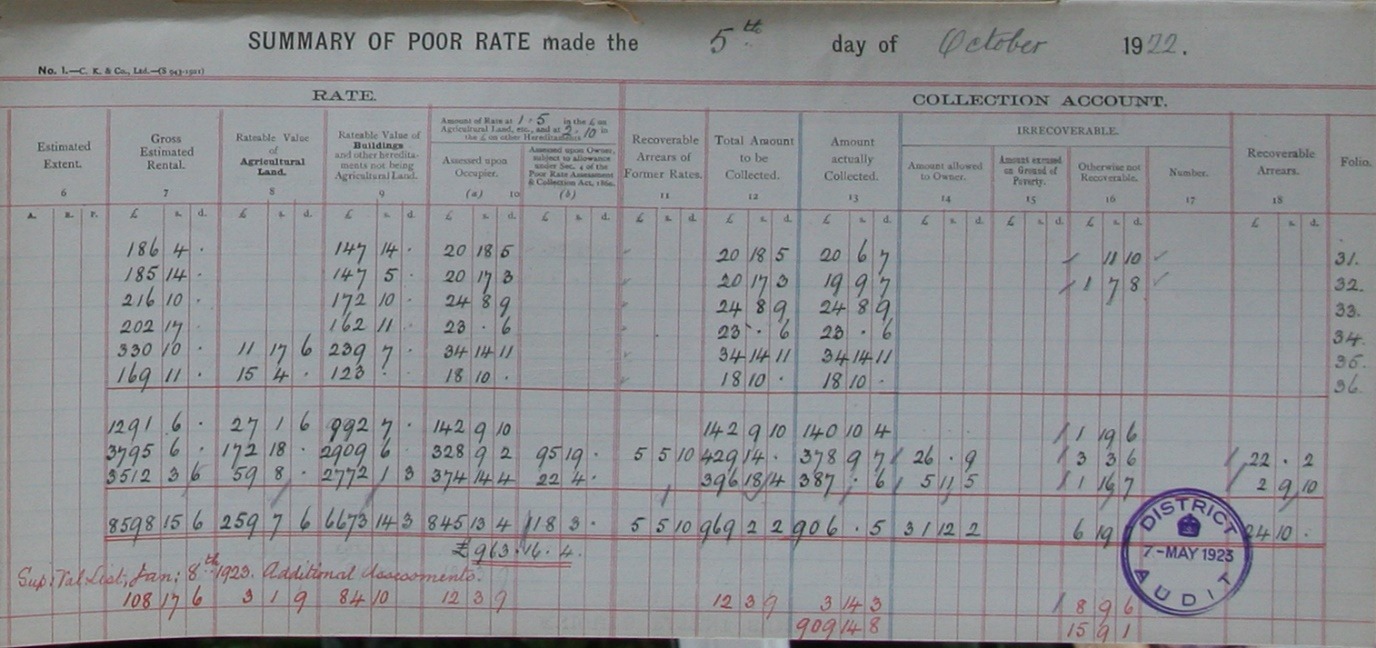 SUMMARY OF POOR RATE made the 5th day of October 1922.
No. 1.—C. K. & Co., Ltd.—(S 943-1921)
RATE. COLLECTION ACCOUNT.
Estimated Extent. 6
Gross Estimated Rental. 7
Rateable Value of Agricultural Land. 8
Rateable Value of Buildings and other hereditaments not being Agricultural Land. 9
Amount of Rate at 1.5 in the £ on Agricultural Land, etc., and at 2.10 in the £ on other Hereditaments
Assessed upon Occupier. (a) 10
Assessed upon Owner, subject to allowance under Sec. 4 of the Poor Rate Assessment & Collection Act, 1869. (b)
Recoverable Arrears of Former Rates. 11
Total Amount to be Collected. 12
Amount actually Collected. 13
IRRECOVERABLE.
Amount allowed to Owner. 14
Amount excused on Ground of Poverty. 15
Otherwise not Recoverable. 16
Number. 17
Recoverable Arrears. 18
Folio.
A. R. P. £ s. d. £ s. d. £ s. d. £ s. d. £ s. d. £ s. d. £ s. d. £ s. d. £ s. d. £ s. d. £ s. d. £ s. d.
186 4 · 147 14 · 20 18 5 20 18 5 20 6 7 11 10 31.
185 14 · 147 5 · 20 17 3 20 17 3 19 9 7 1 7 8 32.
216 10 · 172 10 · 24 8 9 24 8 9 24 8 9 33.
202 17 · 162 11 · 23 · 6 23 · 6 23 · 6 34.
330 10 · 11 17 6 239 7 · 34 14 11 34 14 11 34 14 11 35.
169 11 · 15 4 · 123 · · 18 10 · 18 10 · 18 10 · 36.
1291 6 · 27 1 6 992 7 · 142 9 10 142 9 10 140 10 4 1 19 6
3795 6 · 172 18 · 2909 6 · 328 9 2 95 19 · 5 5 10 429 14 · 378 9 7 26 · 9 3 3 6 22 · 2
3512 3 6 59 8 · 2772 1 3 374 14 4 22 4 · 396 18 4 387 · 6 5 11 5 1 16 7 2 9 10
8598 15 6 259 7 6 6673 14 3 845 13 4 118 3 · 5 5 10 969 2 2 906 · 5 31 12 2 6 19 24 10 ·
£963.16.4.
Sup: Val: List, Jan: 8th 1923. Additional Assessments.
108 17 6 3 1 9 84 10 12 3 9 12 3 9 3 14 3 8 9 6
909 14 8 15 9 1
DISTRICT
7-MAY 1923
AUDIT